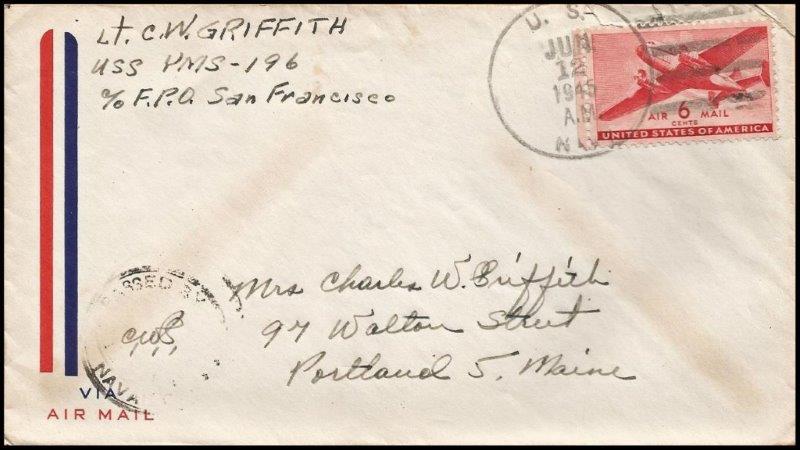 Lt. C.W. GRIFFITH
USS YMS-196
c/o F.P.O. San Francisco
U. S.
JUN
12
1945
A.M
AIR 6 MAIL
CENTS
UNITED STATES OF AMERICA
Mrs Charles W. Griffith
97 Walton Street
Portland 5, Maine
PASSED BY
NAVA
VIA
AIR MAIL